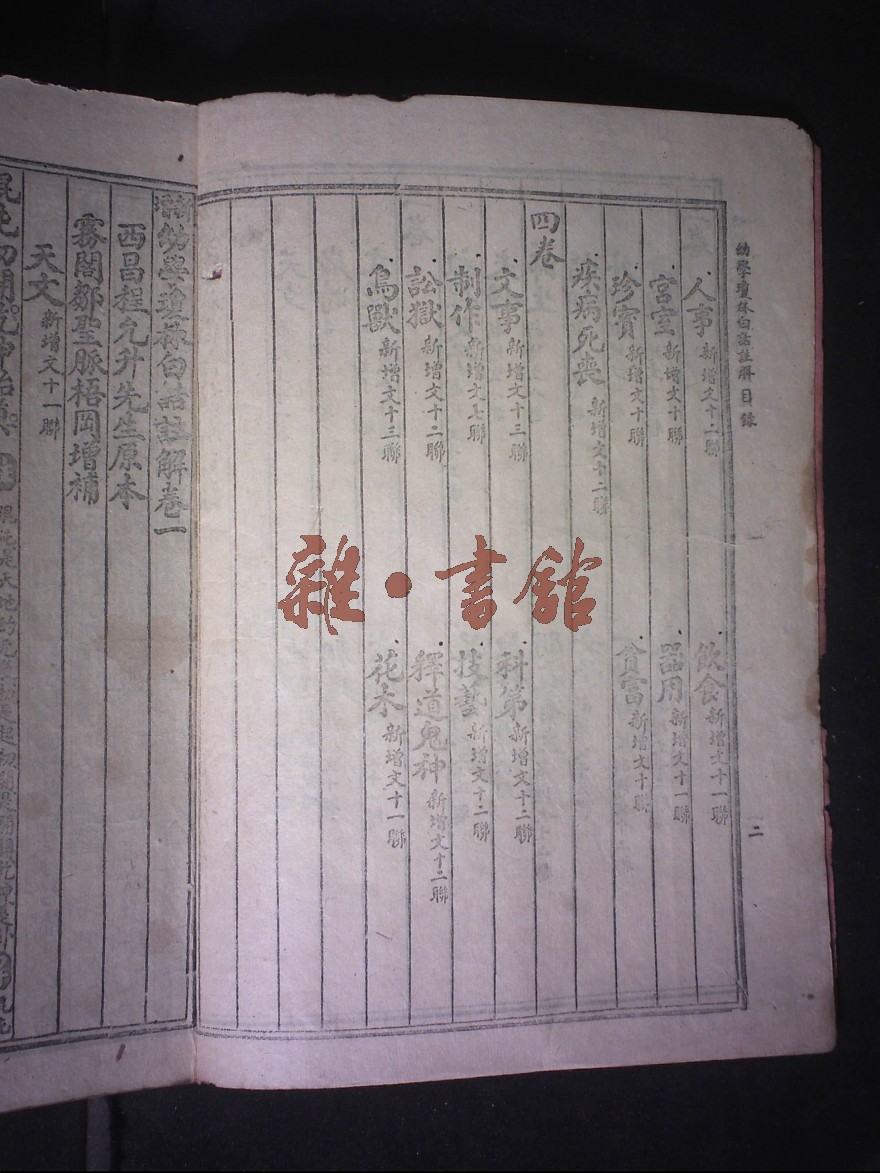 幼學瓊林白話註解 目錄
二
人事 新增文十二聯
飲食 新增文十一聯
宮室 新增文十聯
器用 新增文十一聯
珍寶 新增文十聯
貧富 新增文十聯
疾病死喪 新增文十二聯
四卷
文事 新增文十三聯
科第 新增文十二聯
制作 新增文七聯
技藝 新增文十二聯
訟獄 新增文十二聯
釋道鬼神 新增文十二聯
鳥獸 新增文十三聯
花木 新增文十一聯
新增幼學瓊林白話註解卷一
西昌程允升先生原本
霧閣鄒聖脈梧岡增補
天文 新增文十一聯
混沌初開乾坤始奠
雜·書館